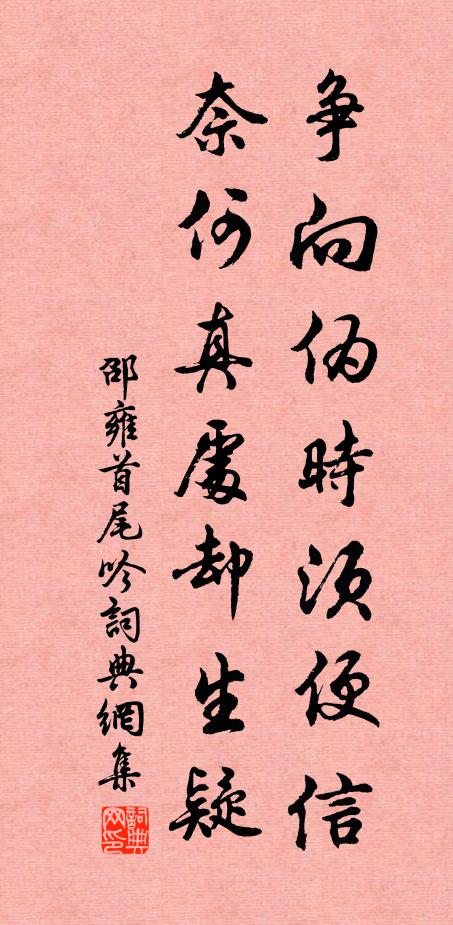 争向伪時須便信
奈何真處却生疑
邵雍首尾吟詞典網集
詞典
网印